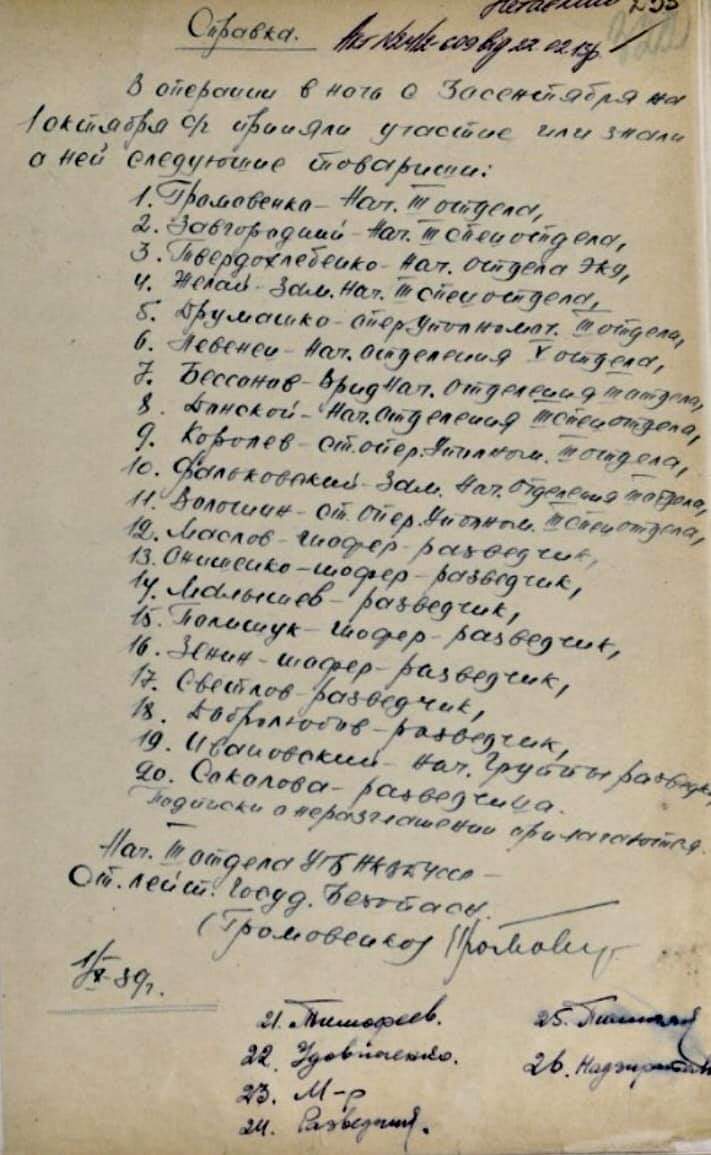 Справка.
Акт №24/2-609 від 22.02.17р
В операции в ночь с 30 сентября на
1 октября с/г приняли участие или знали
о ней следующие товарищи:
1. Громовенко – Нач. III отдела,
2. Завгородний – Нач. III спецотдела,
3. Твердохлебенко – Нач. отдела ЭКУ,
4. Желай – Зам. Нач. III спецотдела,
5. Друмашко – опер. Уполномоч. III отдела,
6. Левенец – Нач. отделения V отдела,
7. Бессонов – Врид Нач. отделения III отдела,
8. Донской – Нач. Отделения III спецотдела,
9. Королев – ст. опер. Уполном. III отдела,
10. Фальковский – Зам. Нач. Отделения III отдела,
11. Волошин – ст. Опер. Уполном. III спецотдела,
12. Маслов – шофер – разведчик,
13. Онищенко – шофер – разведчик,
14. Малышев – разведчик,
15. Полищук – шофер – разведчик,
16. Зенин – шофер – разведчик,
17. Светлов – разведчик,
18. Добролюбов – разведчик,
19. Ивановский – Нач. Группы разведки,
20. Соколова – разведчица.
Подписки о неразглашении прилагаются.
Нач. III отдела УГБ НКВД УССР –
Ст. лейт. Госуд. Безопасн.
(Громовенко)
1/X-39г.
21. Тимофеев.
22. Удовиченко.
23. М-р
24. Разведчик.
25.
26.